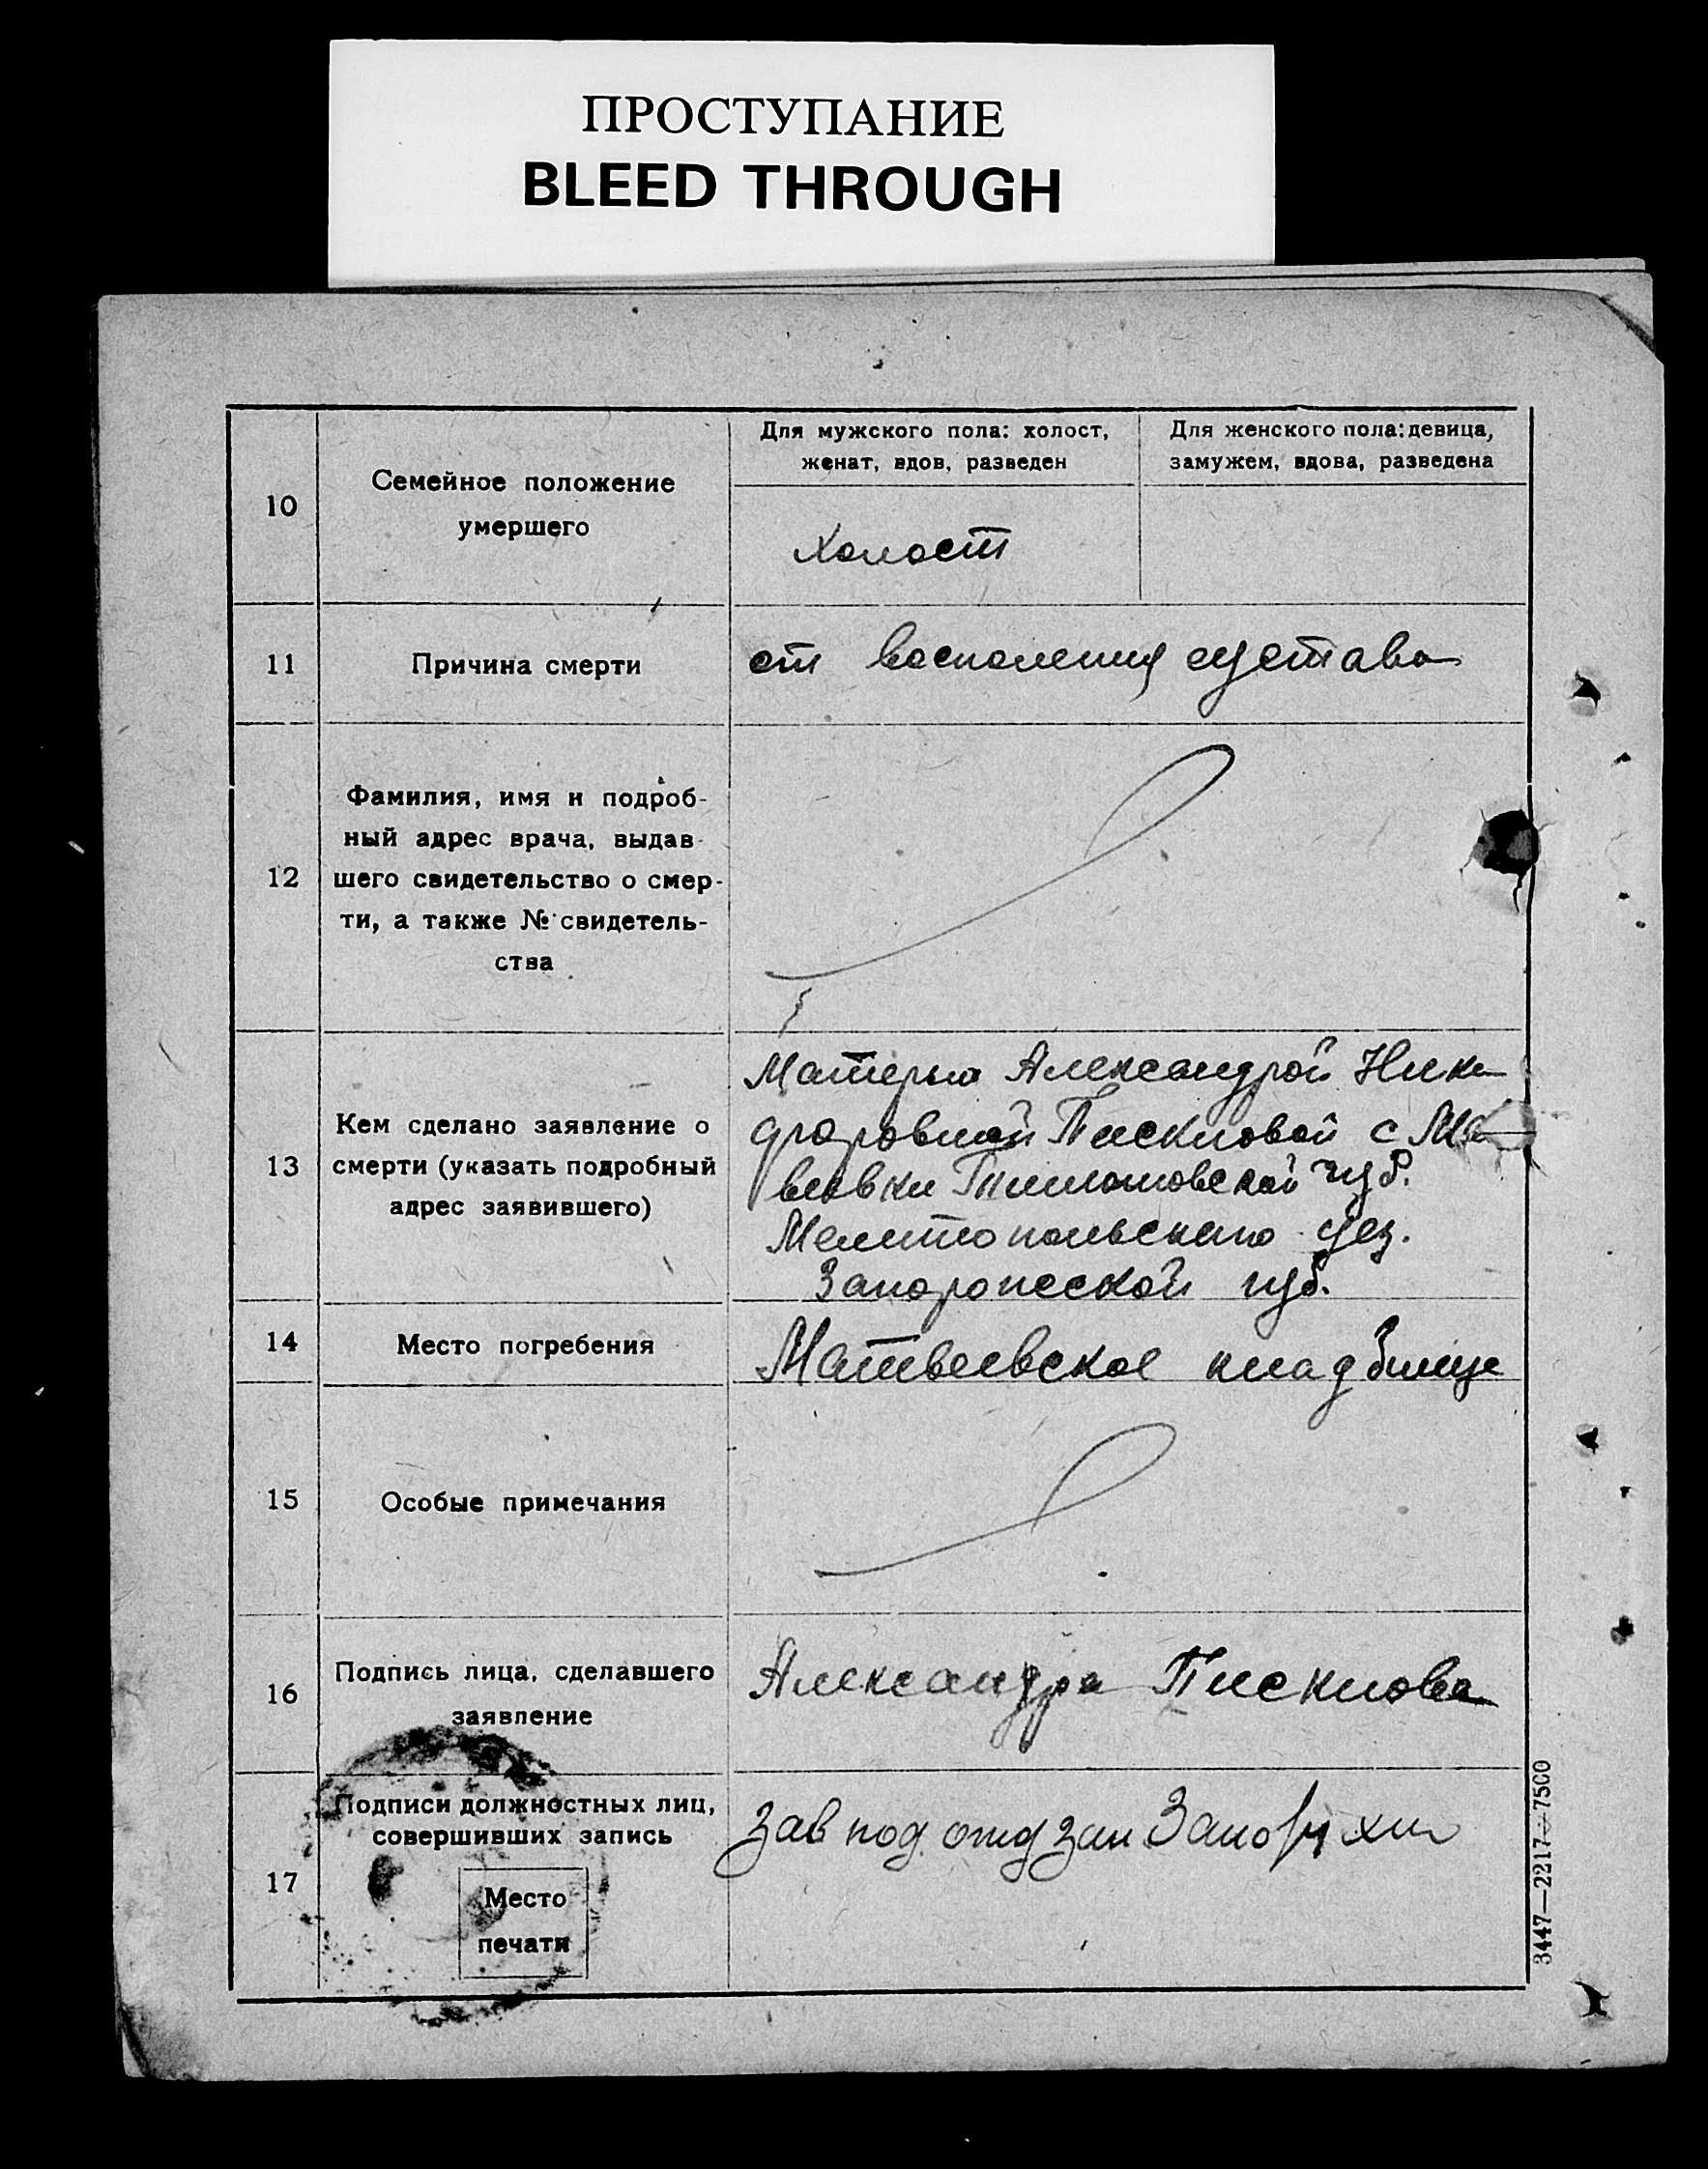 ПРОСТУПАНИЕ
BLEED THROUGH
10
Семейное положение
умершего
Для мужского пола: холост,
женат, вдов, разведен
Для женского пола: девица,
замужем, вдова, разведена
Холост
11
Причина смерти
от воспаления сустава
12
Фамилия, имя и подроб-
ный адрес врача, выдав-
шего свидетельство о смер-
ти, а также № свидетель-
ства
13
Кем сделано заявление о
смерти (указать подробный
адрес заявившего)
Матерью Александрой Ника
форовной Пискловой с
веевки губ.
Мелитопольского уез.
Запорожеской губ.
14
Место погребения
Матвеевское кладбище
15
Особые примечания
16
Подпись лица, сделавшего
заявление
Александра Писклова
17
Подписи должностных лиц,
совершивших запись
Место
печати
Зав под отд
3447—2217—7500